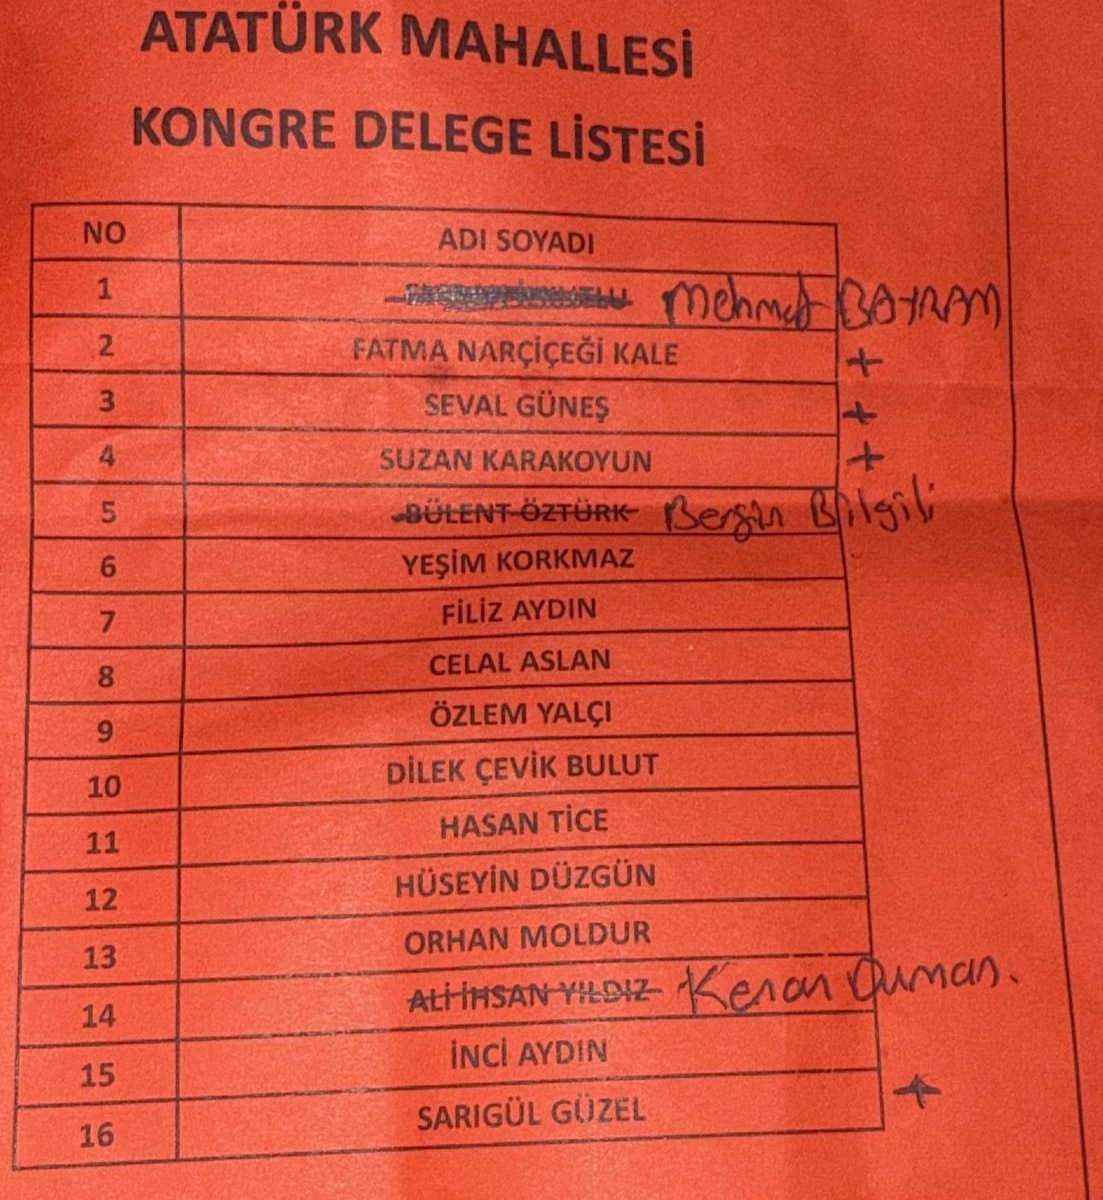 ATATÜRK MAHALLESİ
KONGRE DELEGE LİSTESİ
NO ADI SOYADI
1 Mehmet BAYRAM
2 FATMA NARÇİÇEĞİ KALE +
3 SEVAL GÜNEŞ +
4 SUZAN KARAKOYUN +
5 BÜLENT ÖZTÜRK Bergin Bilgili
6 YEŞİM KORKMAZ
7 FİLİZ AYDIN
8 CELAL ASLAN
9 ÖZLEM YALÇI
10 DİLEK ÇEVİK BULUT
11 HASAN TİCE
12 HÜSEYİN DÜZGÜN
13 ORHAN MOLDUR
14 ALİ İHSAN YILDIZ Kenan Duman.
15 İNCİ AYDIN
16 SARIGÜL GÜZEL +